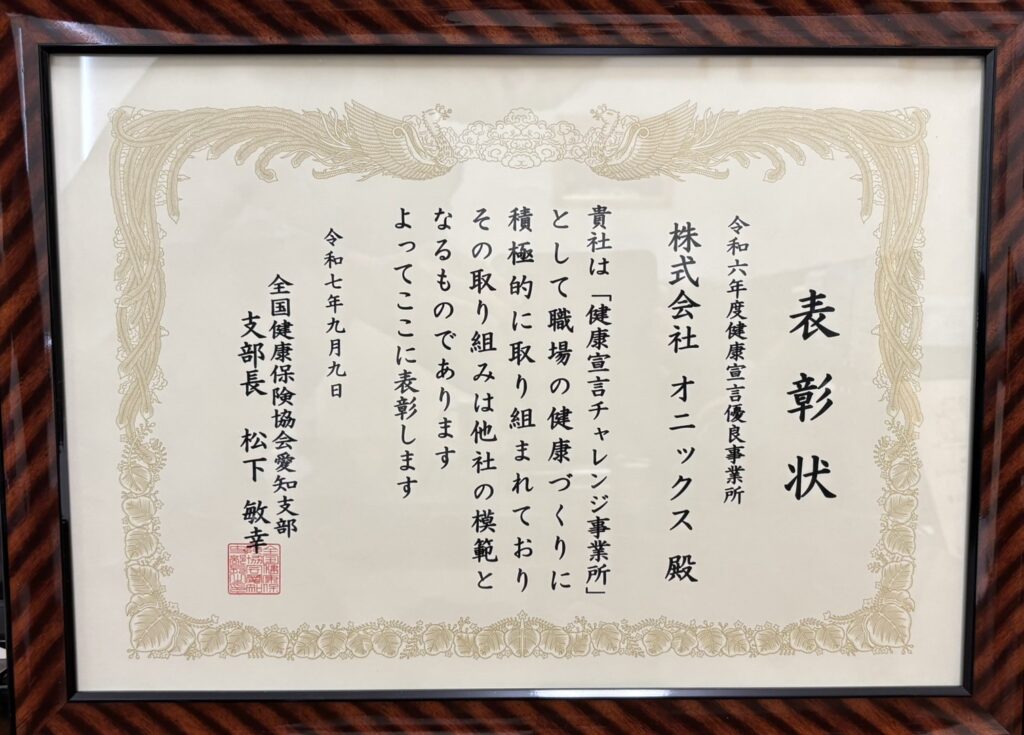 表彰状
令和六年度健康宣言優良事業所
株式会社 オニックス 殿
貴社は「健康宣言チャレンジ事業所」
として職場の健康づくりに
積極的に取り組まれており
その取り組みは他社の模範と
なるものであります
よってここに表彰します
令和七年九月九日
全国健康保険協会愛知支部
支部長 松下 敏幸